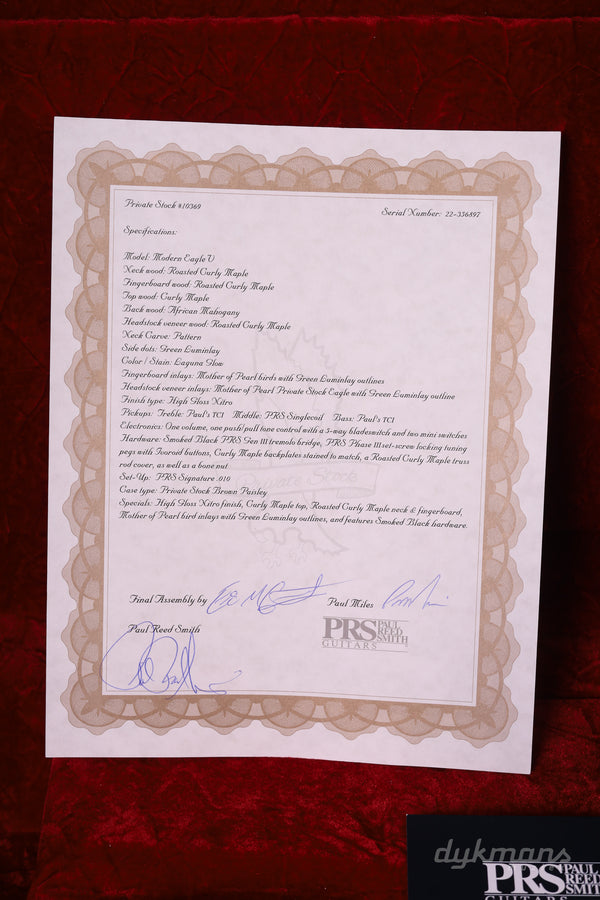 Private Stock #10369
Serial Number: 22-336897
Specifications:
Model: Modern Eagle V
Neck wood: Roasted Curly Maple
Fingerboard wood: Roasted Curly Maple
Top wood: Curly Maple
Back wood: African Mahogany
Headstock veneer wood: Roasted Curly Maple
Neck Carve: Pattern
Side dots: Green Luminlay
Color / Stain: Laguna Glow
Fingerboard inlays: Mother of Pearl birds with Green Luminlay outlines
Headstock veneer inlays: Mother of Pearl Private Stock Eagle with Green Luminlay outline
Finish type: High Gloss Nitro
Pickups: Treble: Paul's TCI Middle: PRS Singlecoil Bass: Paul's TCI
Electronics: One volume, one push/pull tone control with a 5-way bladeswitch and two mini switches
Hardware: Smoked Black PRS Gen III tremolo bridge, PRS Phase III set-screw locking tuning
pegs with Tooroid buttons, Curly Maple backplates stained to match, a Roasted Curly Maple truss
rod cover, as well as a bone nut
Private Stock
Set-Up: PRS Signature .010
Case type: Private Stock Brown Paisley
Specials: High Gloss Nitro finish, Curly Maple top, Roasted Curly Maple neck & fingerboard,
Mother of Pearl bird inlays with Green Luminlay outlines, and features Smoked Black hardware.
Final Assembly by
Paul Miles
Paul Reed Smith
PRS PAUL REED SMITH
GUITARS
dykmans
PRS PAUL REED SMITH
GUITARS